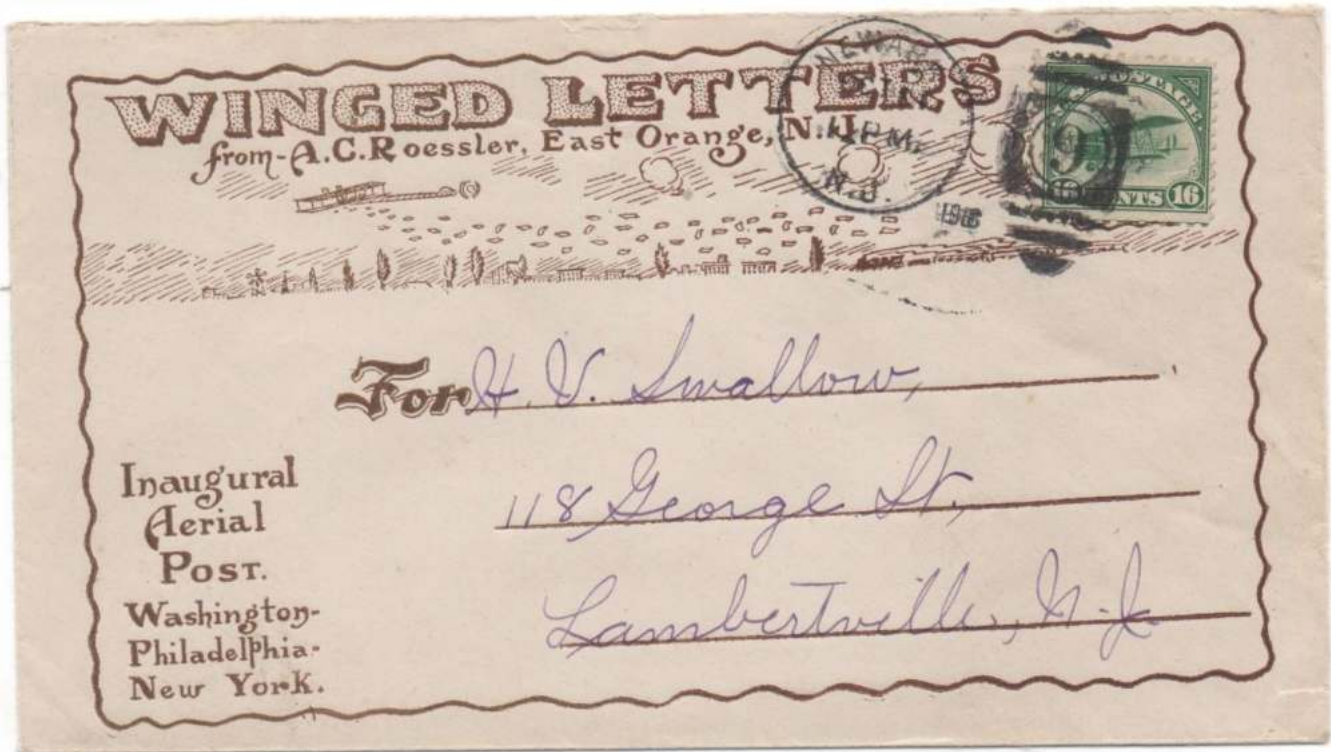 WINGED LETTERS
from-A.C.Roessler, East Orange, N.J.
NEWARK
PM.
N.J.
1918
9
16 CENTS 16
For H. V. Swallow,
118 George St.,
Lambertville, N.J.
Inaugural
Aerial
Post.
Washington-
Philadelphia-
New York.